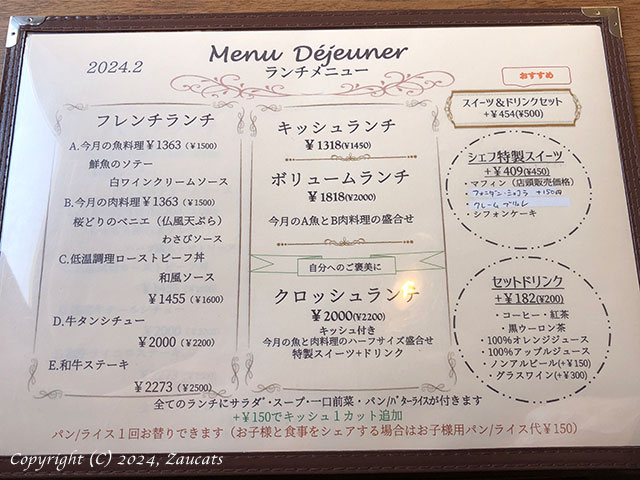 2024.2
Menu Déjeuner
ランチメニュー
フレンチランチ
A.今月の魚料理￥1363（￥1500）
鮮魚のソテー
白ワインクリームソース
B.今月の肉料理￥1363（￥1500）
桜どりのベニエ（仏風天ぷら）
わさびソース
C.低温調理ローストビーフ丼
和風ソース
￥1455（￥1600）
D.牛タンシチュー
￥2000（￥2200）
E.和牛ステーキ
￥2273（￥2500）
キッシュランチ
￥1318(¥1450)
ボリュームランチ
￥1818(¥2000)
今月のA魚とB肉料理の盛合せ
自分へのご褒美に
クロッシュランチ
￥2000(¥2200)
キッシュ付き
今月の魚と肉料理のハーフサイズ盛合せ
特製スイーツ+ドリンク
おすすめ
スイーツ＆ドリンクセット
+￥454(¥500)
シェフ特製スイーツ
+￥409(¥450)
・マフィン（店頭販売価格）
フォンダン・ショコラ +150円
クレームブリュレ
・シフォンケーキ
セットドリンク
+￥182(¥200)
・コーヒー・紅茶
・黒ウーロン茶
・100%オレンジジュース
・100%アップルジュース
・ノンアルビール(+¥150)
・グラスワイン(+¥300)
全てのランチにサラダ・スープ・一口前菜・パン/ﾊﾞﾀｰﾗｲｽが付きます
+￥150でキッシュ１カット追加
パン/ライス１回お替りできます（お子様と食事をシェアする場合はお子様用パン/ライス代￥150）
Copyright (C) 2024, Zaucats